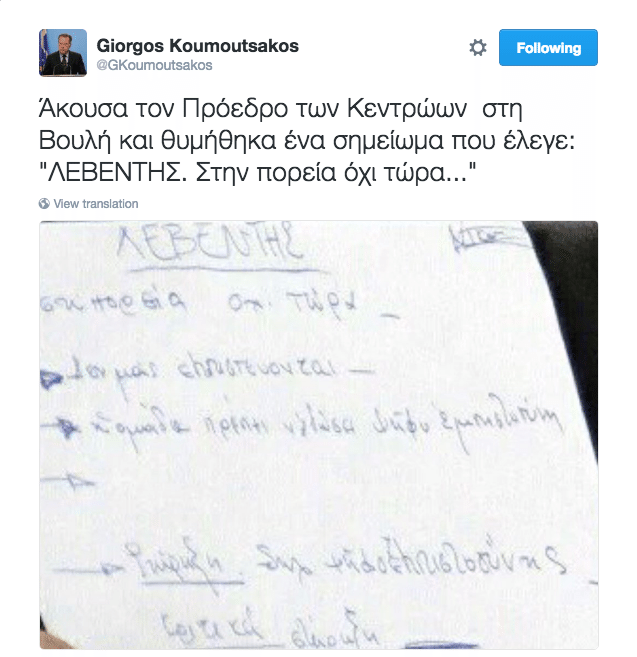 Giorgos Koumoutsakos
@GKoumoutsakos
Following
Άκουσα τον Πρόεδρο των Κεντρώων στη
Βουλή και θυμήθηκα ένα σημείωμα που έλεγε:
"ΛΕΒΕΝΤΗΣ. Στην πορεία όχι τώρα..."
View translation
ΛΕΒΕΝΤΗΣ
πορεία οχι τώρα
Δεν μας εμπιστευονται
ομάδα πρέπει ψήφο Εμπιστοσύνη
ψήφο Εμπιστοσύνης
κριτικά στήριξη